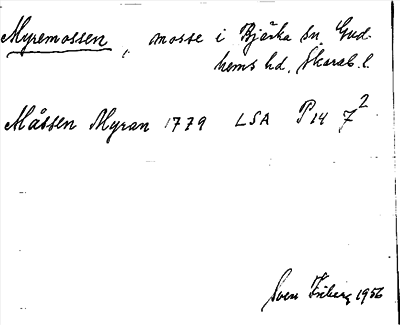 Myremossen, mosse i Bjärka sn, Gud-
hems hd, Skarab. l.
Måssen Myran 1779 LSA P14 7²
Sven Friberg 1956